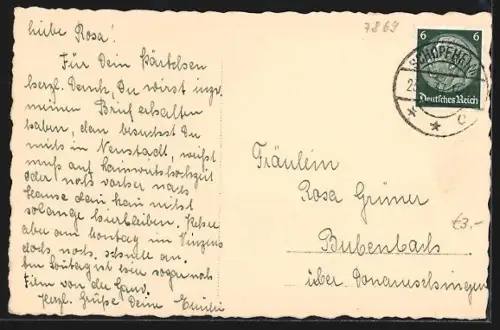 7869
Liebe Rosa!
Für Dein Kärtchen
herzl. Dank, Du wirst inzw.
meinen Brief erhalten
haben, dan besuchst Du
mich in Neustadt, weißt
muß auf
oder noch vorher nach
Hause dan kan nicht
solange hierbleiben.
aber am Montag in
doch noch schnell an.
Sontag ist hier sogar noch
Film von der
Herzl. Grüße Deine Emilie
6 6
Deutsches Reich
SCHOPFHEIM
c
Fräulein
Rosa Grüner
Bubenbach
über Donaueschingen
€3,-